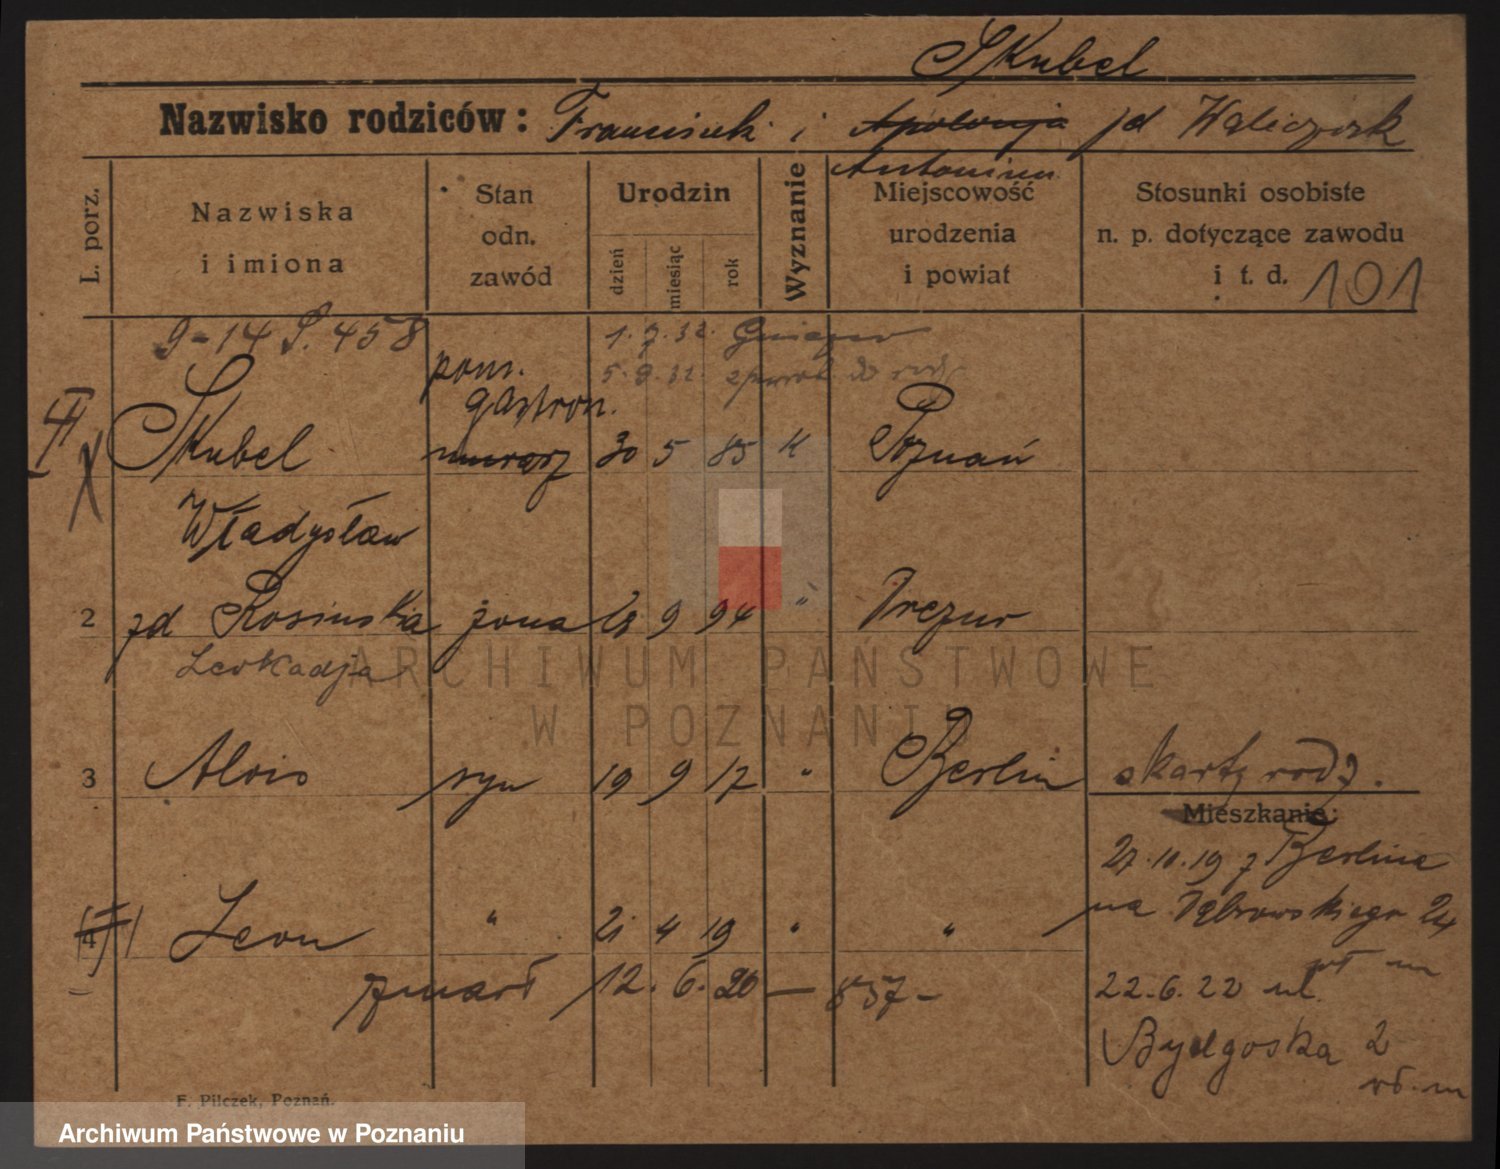 Skubel
Nazwisko rodziców: Franciszek i Apolonja zd Waliczek
Antonina
L. porz.
Nazwiska
i imiona
Stan
odn.
zawód
Urodzin
dzień
miesiąc
rok
Wyznanie
Miejscowość
urodzenia
i powiat
Stosunki osobiste
n. p. dotyczące zawodu
i t. d. 101
9-14 S. 458 1. 9. 32. Gniezno
pom. 5. 9. 32.
gastron.
Skubel murarz 30 5 85 K Poznań
Władysław
2 zd Rosinska żona 9 94 "
Leokadja
3 Alois syn 19 9 17 " Berlin
Mieszkanie:
27.10.19 z Berlina
na Dąbrowskiego 24
4 Leon " 2 4 19 " "
zmarł 12. 6. 20 — 857 –
22.6.22 ul.
Bydgoska 2
F. Pilczek, Poznań.
ARCHIWUM PAŃSTWOWE
W POZNANIU
Archiwum Państwowe w Poznaniu